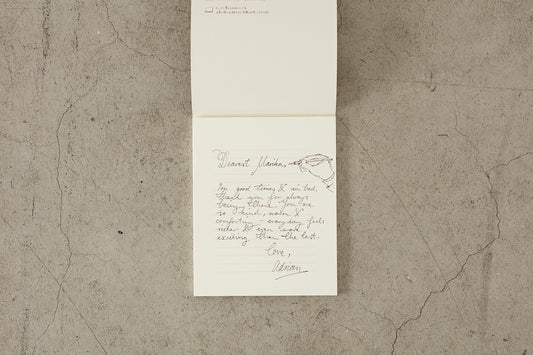 Dearest Marika,
For good times & in bad,
thank you for always
being there. You are
so kind, warm &
comforting - everyday feels
newer & even more
exciting than the last.
Love,
Adrian